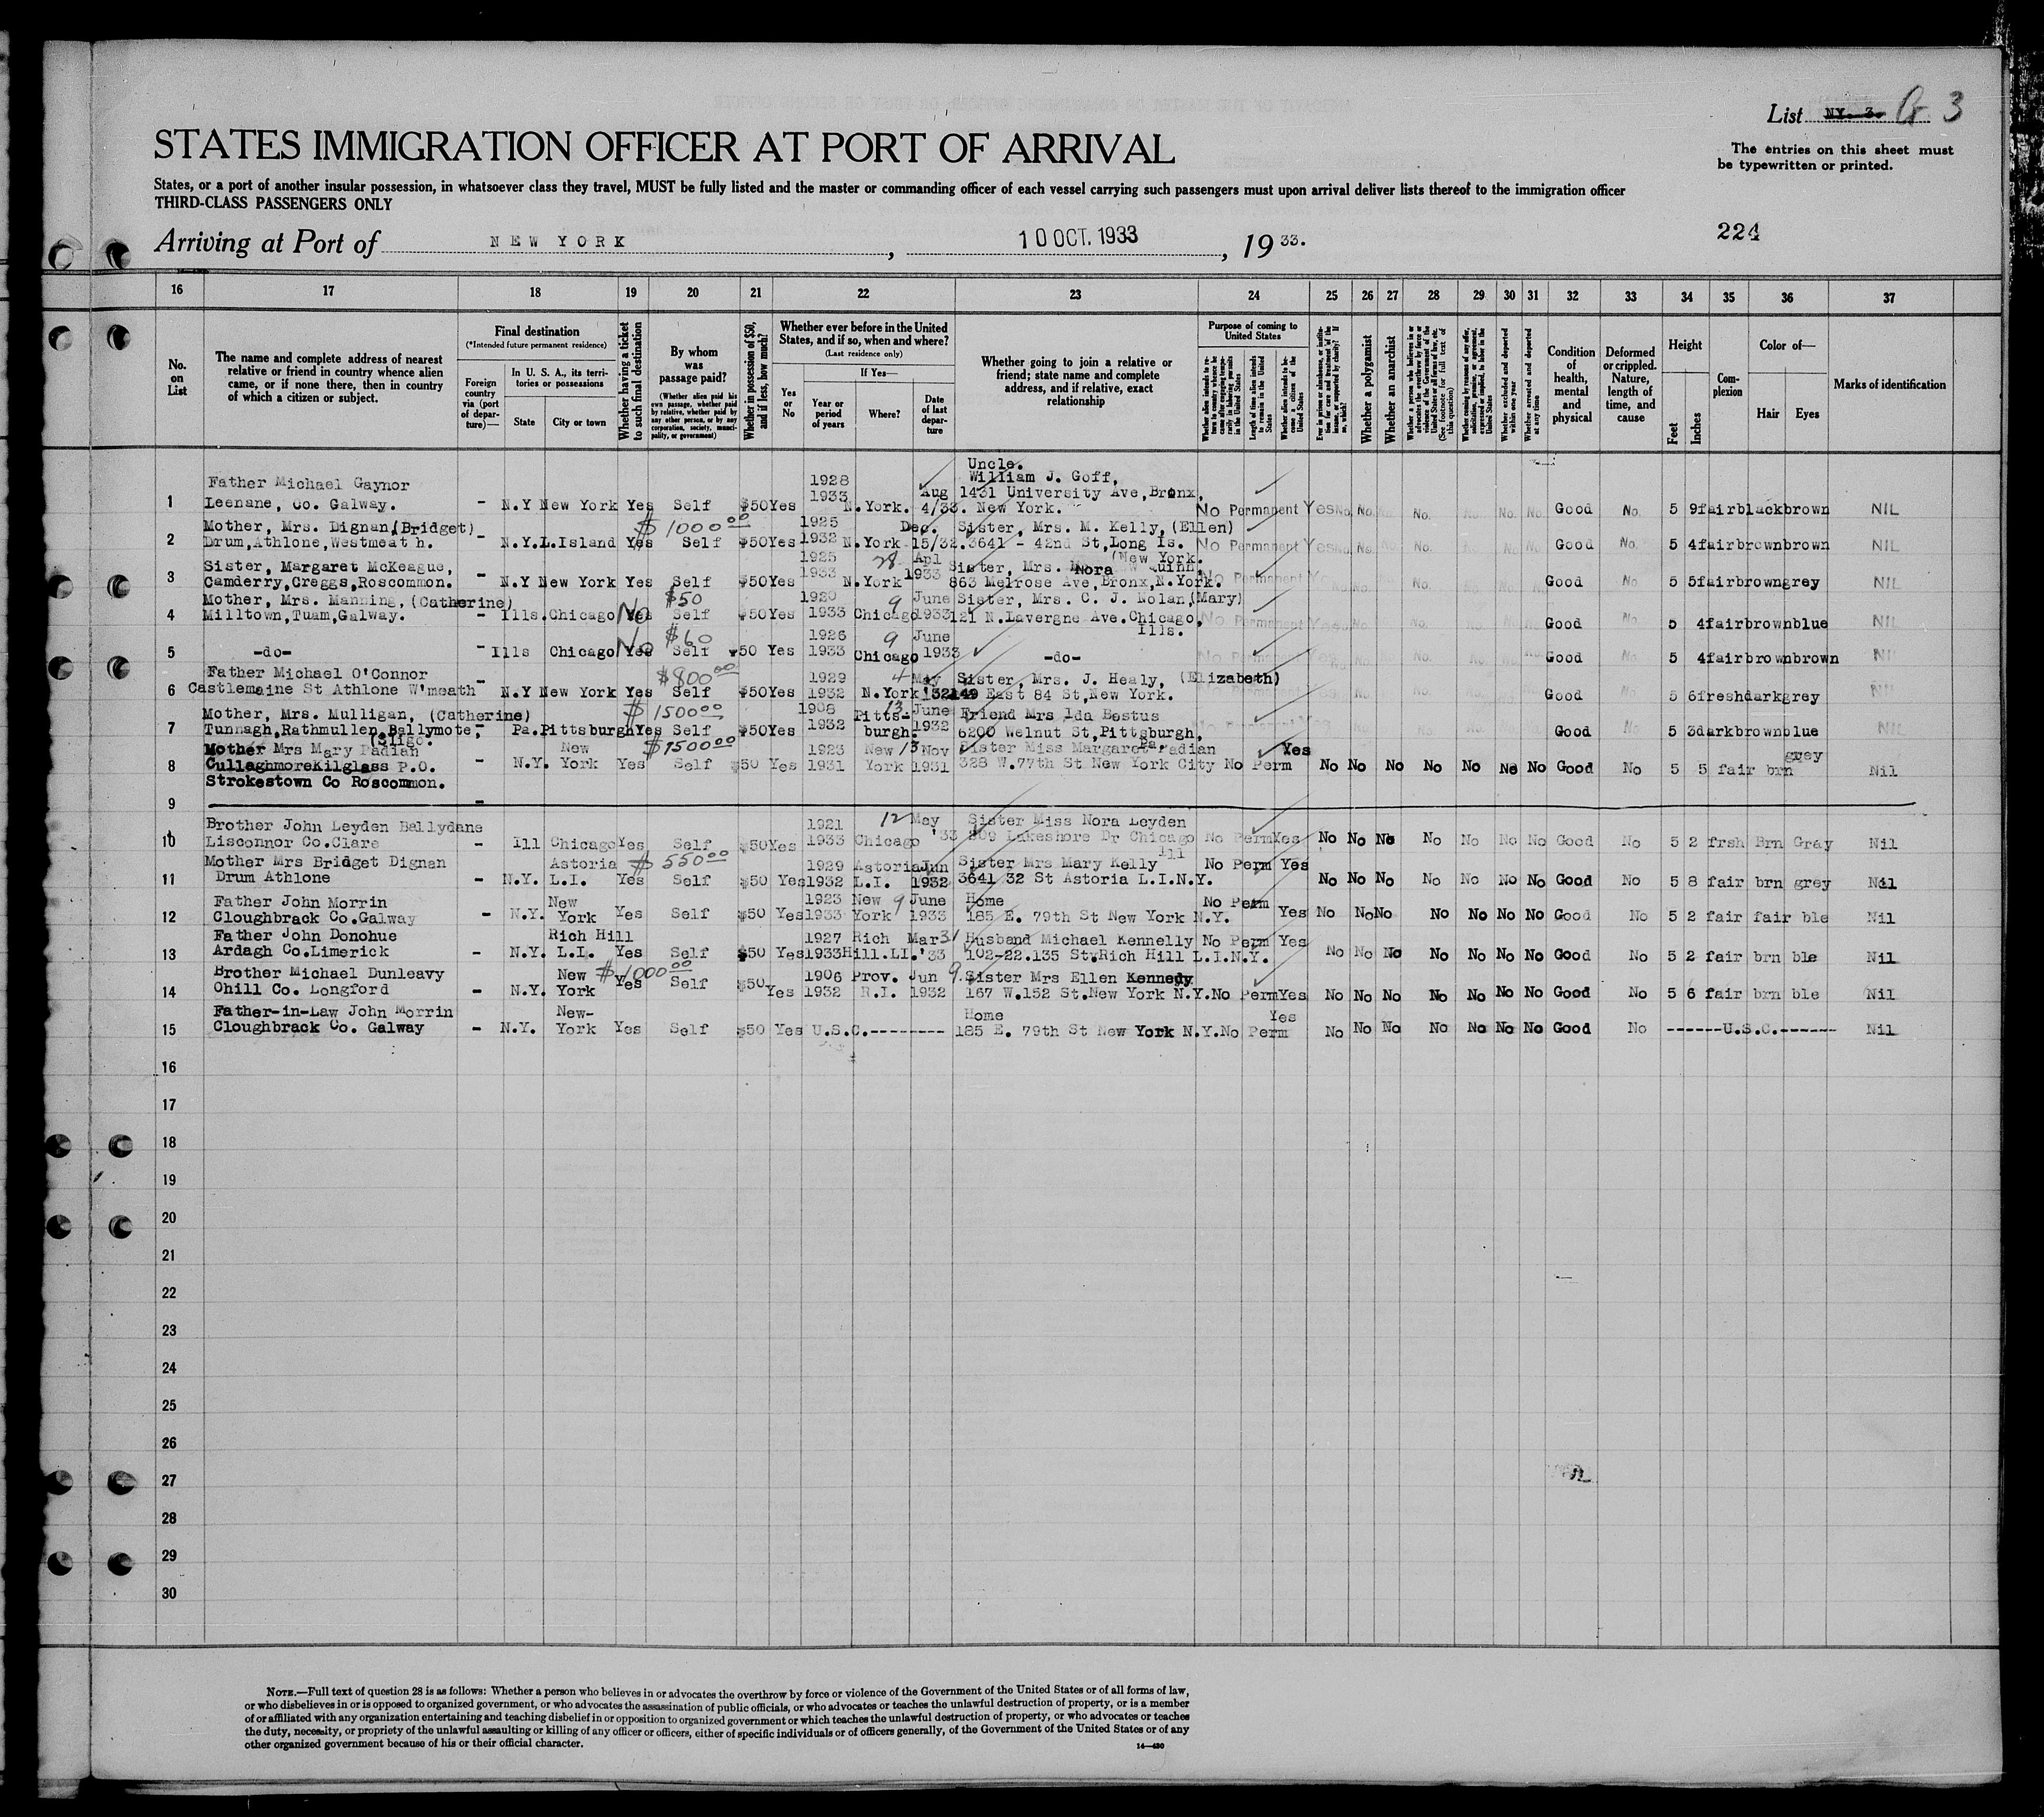 List NY. 3. 3
STATES IMMIGRATION OFFICER AT PORT OF ARRIVAL
The entries on this sheet must
be typewritten or printed.
States, or a port of another insular possession, in whatsoever class they travel, MUST be fully listed and the master or commanding officer of each vessel carrying such passengers must upon arrival deliver lists thereof to the immigration officer
THIRD-CLASS PASSENGERS ONLY
224
Arriving at Port of NEW YORK, 10 OCT. 1933, 19 33.
16 17 18 19 20 21 22 23 24 25 26 27 28 29 30 31 32 33 34 35 36 37
No. on List
The name and complete address of nearest
relative or friend in country whence alien
came, or if none there, then in country
of which a citizen or subject.
Final destination
(*Intended future permanent residence)
Foreign country via (port of departure)—
In U. S. A., its territories or possessions
State
City or town
Whether having a ticket to such final destination
By whom was passage paid?
(Whether alien paid his own passage, whether paid by relative, whether paid by any other person, or by any corporation, society, municipality, or government)
Whether in possession of $50, and if less, how much?
Whether ever before in the United States, and if so, when and where?
(Last residence only)
Yes or No
If Yes—
Year or period of years
Where?
Date of last departure
Whether going to join a relative or
friend; state name and complete
address, and if relative, exact
relationship
Purpose of coming to United States
Whether alien intends to return to country whence he came after engaging temporarily in laboring pursuits in the United States
Length of time alien intends to remain in the United States
Whether alien intends to become a citizen of the United States
Ever in prison or almshouse, or institution for care and treatment of the insane, or supported by charity? If so, which?
Whether a polygamist
Whether an anarchist
Whether a person who believes in or advocates the overthrow by force or violence of the Government of the United States or all forms of law, etc. (See footnote for full text of this question)
Whether coming by reason of any offer, solicitation, promise, or agreement, expressed or implied, to labor in the United States
Whether excluded and deported within one year
Whether arrested and deported at any time
Condition of health, mental and physical
Deformed or crippled. Nature, length of time, and cause
Height
Feet
Inches
Complexion
Color of—
Hair
Eyes
Marks of identification
Father Michael Gaynor 1928 Uncle. William J. Goff,
1 Leenane, Co. Galway. - N.Y New York Yes Self $50 Yes 1933 N.York. Aug 4/33. 1431 University Ave, Bronx, New York. No Permanent Yes No. No. No. No. No. Good No. 5 9 fair black brown NIL
Mother, Mrs. Dignan, (Bridget) $1000 00 1925 Dec. Sister, Mrs. M. Kelly, (Ellen)
2 Drum, Athlone, Westmeath. - N.Y. L.Island Yes Self $50 Yes 1932 N.York 15/32. 3641 - 42nd St, Long Is. (New York. No Permanent Yes No. No. No. No. No. Good No. 5 4 fair brown brown NIL
Sister, Margaret McKeague, 1925 28 Apl Sister, Mrs. Nora Quinn,
3 Camderry, Creggs, Roscommon. - N.Y New York Yes Self $50 Yes 1933 N.York 1933 863 Melrose Ave, Bronx, N.York. Permanent Good No. 5 5 fair brown grey NIL
Mother, Mrs. Manning, (Catherine) $50 1920 9 June Sister, Mrs. C. J. Nolan, (Mary)
4 Milltown, Tuam, Galway. - Ills. Chicago Yes No Self $50 Yes 1933 Chicago 1933 121 N.Lavergne Ave. Chicago, Ills. No Permanent Yes Good No. 5 4 fair brown blue NIL
$60 1926 9 June
5 -do- - Ills Chicago Yes No Self $50 Yes 1933 Chicago 1933 -do- No Permanent Yes Good No. 5 4 fair brown brown NIL
Father Michael O'Connor $800 00 1929 4 May Sister, Mrs. J. Healy, (Elizabeth)
6 Castlemaine St Athlone W'meath - N.Y New York Yes Self $50 Yes 1932 N.York '32 149 East 84 St, New York. Permanent Yes Good No. 5 6 fresh dark grey NIL
Mother, Mrs. Mulligan, (Catherine) $1500 00 1908 Pitts- 13 June Friend Mrs Ida Bestus
7 Tunnagh, Rathmullen, Ballymote, (Sligo. - Pa. Pittsburgh Yes Self $50 Yes 1932 burgh. 1932 6200 Welnut St, Pittsburgh, Pa. No Permanent Yes Good No. 5 3 dark brown blue NIL
Mother Mrs Mary Fadian New $1500 00 1923 New 13 Nov Sister Miss Margaret Fadian Yes grey
8 Cullaghmore Kilglass P.O. - N.Y. York Yes Self $50 Yes 1931 York 1931 328 W.77th St New York City No Perm No No No No No No No Good No 5 5 fair brn Nil
Strokestown Co Roscommon.
9 -
Brother John Leyden Ballydane 1921 12 May Sister Miss Nora Leyden
10 Lisconnor Co.Clare - Ill Chicago Yes Self $50 Yes 1933 Chicago '33 209 Lakeshore Dr Chicago Ill No Perm Yes No No No No No No No Good No 5 2 frsh Brn Gray Nil
Mother Mrs Bridget Dignan Astoria $550 00 1929 Astoria Jun Sister Mrs Mary Kelly No Perm Yes
11 Drum Athlone - N.Y. L.I. Yes Self $50 Yes 1932 L.I. 1932 3641 32 St Astoria L.I.N.Y. No No No No No No No Good No 5 8 fair brn grey Nil
Father John Morrin New 1923 New 9 June Home No Perm
12 Cloughbrack Co.Galway - N.Y. York Yes Self $50 Yes 1933 York 1933 185 E. 79th St New York N.Y. Yes No No No No No No No Good No 5 2 fair fair ble Nil
Father John Donohue Rich Hill 1927 Rich Mar 31 Husband Michael Kennelly No Perm Yes
13 Ardagh Co.Limerick - N.Y. L.I. Yes Self $50 Yes 1933 Hill.LI. '33 102-22.135 St. Rich Hill L.I.N.Y. No No No No No No No Good No 5 2 fair brn ble Nil
Brother Michael Dunleavy New $1000 00 1906 Prov. Jun 9. Sister Mrs Ellen Kennedy
14 Ohill Co. Longford - N.Y. York Yes Self $50 Yes 1932 R.I. 1932 167 W.152 St. New York N.Y. No Perm Yes No No No No No No No Good No 5 6 fair brn ble Nil
Father-in-Law John Morrin New- Home Yes
15 Cloughbrack Co. Galway - N.Y. York Yes Self $50 Yes U.S.C.-------- 185 E. 79th St New York N.Y. No Perm No No No No No No No Good No ------U.S.C.------- Nil
16
17
18
19
20
21
22
23
24
25
26
27
28
29
30
NOTE.—Full text of question 28 is as follows: Whether a person who believes in or advocates the overthrow by force or violence of the Government of the United States or of all forms of law,
or who disbelieves in or is opposed to organized government, or who advocates the assassination of public officials, or who advocates or teaches the unlawful destruction of property, or is a member
of or affiliated with any organization entertaining and teaching disbelief in or opposition to organized government or which teaches the unlawful destruction of property, or who advocates or teaches
the duty, necessity, or propriety of the unlawful assaulting or killing of any officer or officers, either of specific individuals or of officers generally, of the Government of the United States or of any
other organized government because of his or their official character.
14—430